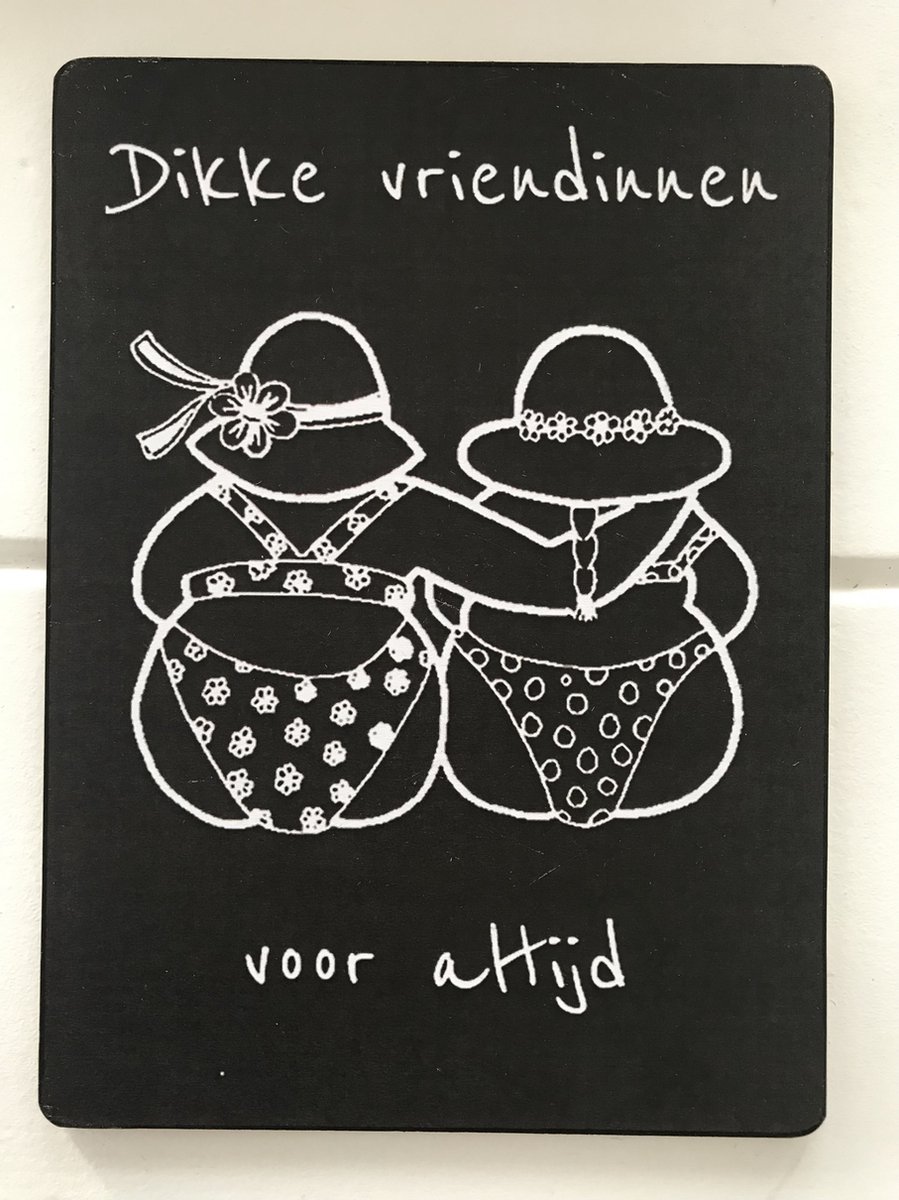 Dikke vriendinnen
voor altijd